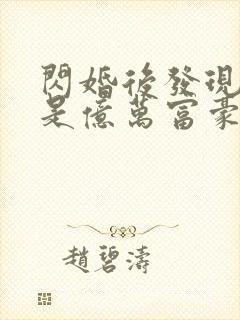 閃婚後發現
是億萬富豪
趙碧濤